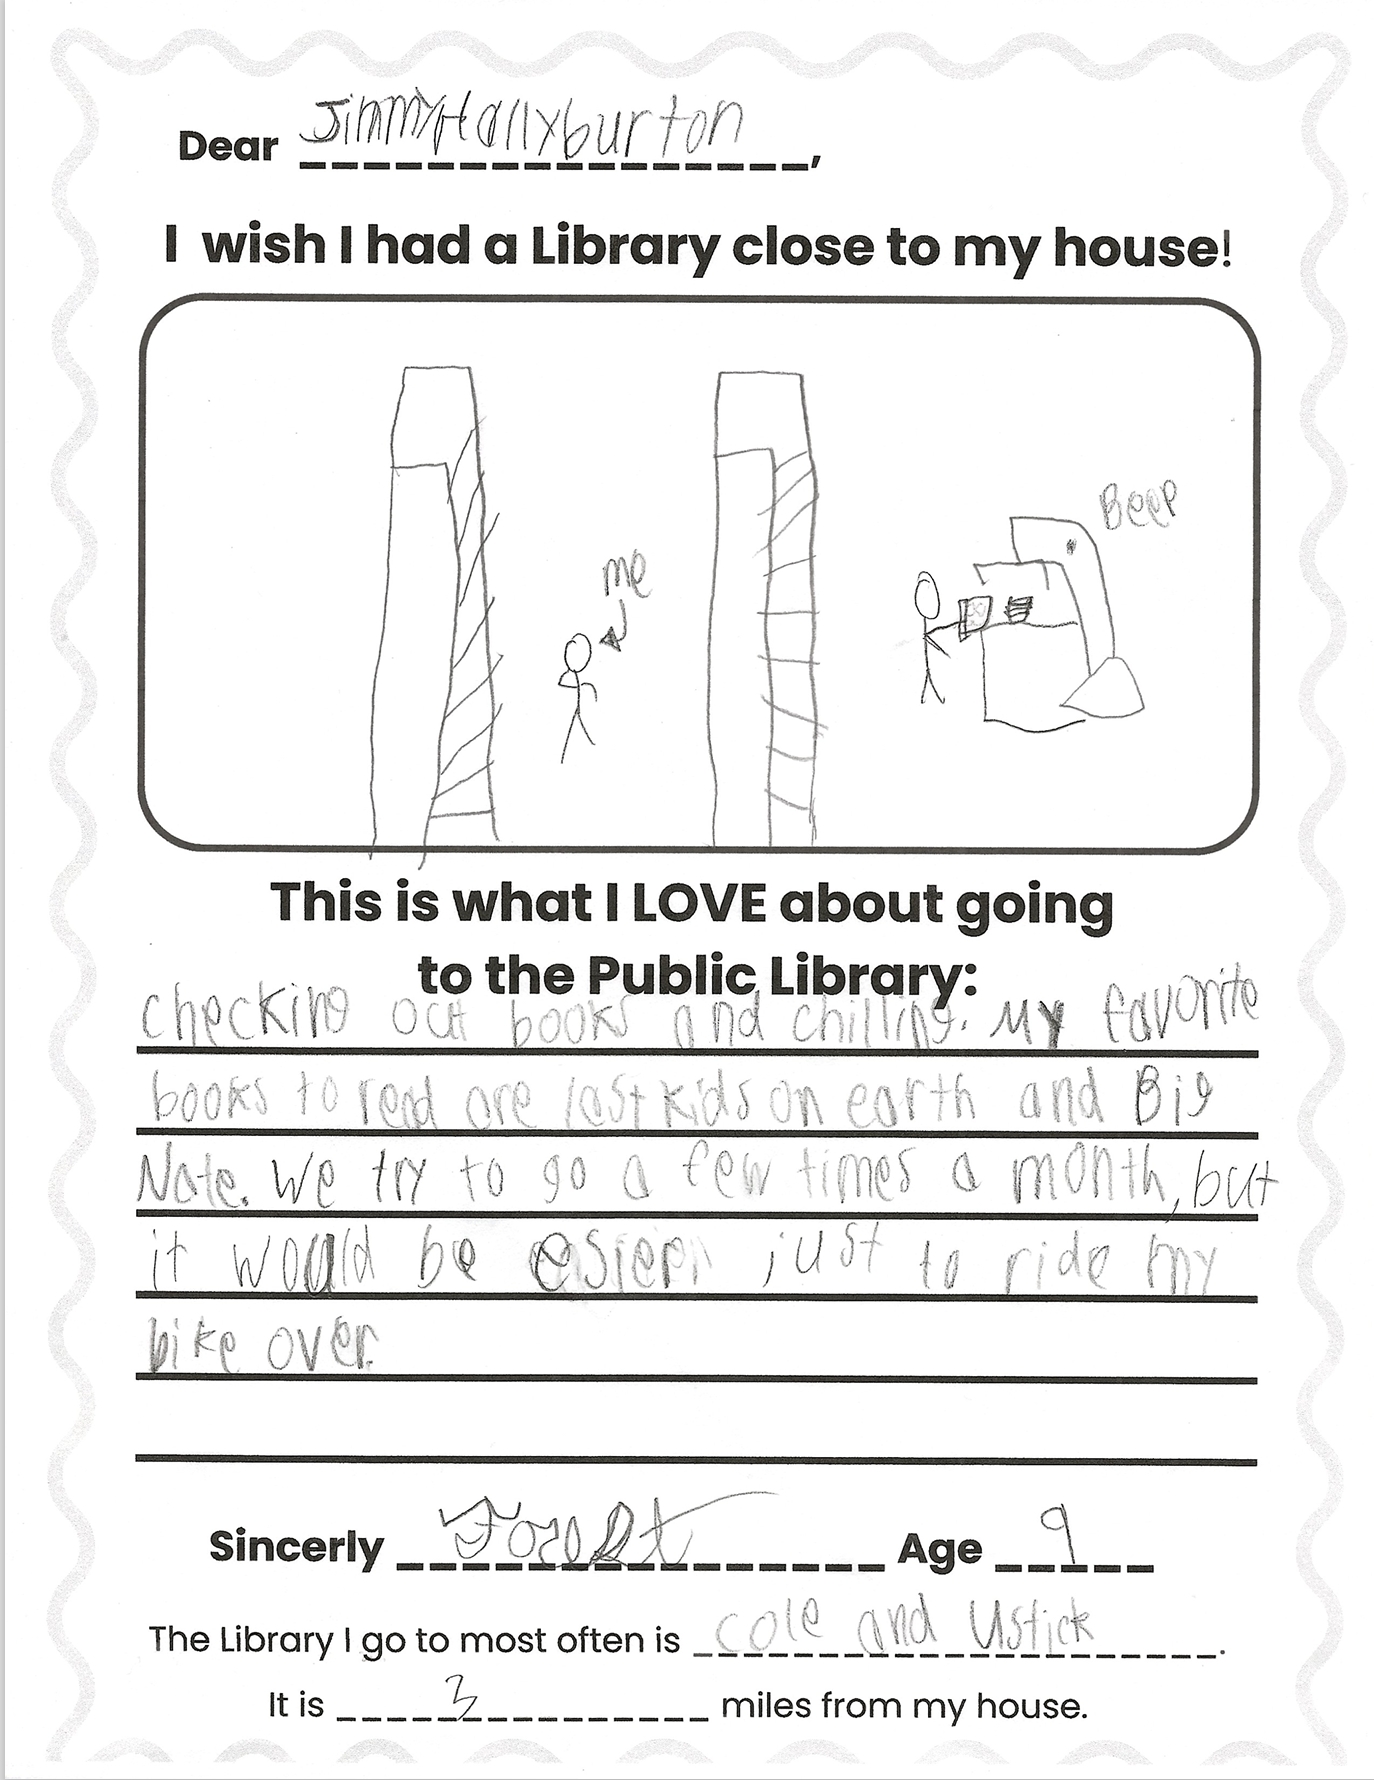 Dear Jimmy Hallyburton,
I wish I had a Library close to my house!
Beep
me
This is what I LOVE about going
to the Public Library:
checking out books and chilling. My favorite
books to read are last kids on earth and Big
Nate. We try to go a few times a month, but
it would be esier just to ride my
bike over.
Sincerly Forest Age 9
The Library I go to most often is cole and Ustick.
It is 3 miles from my house.